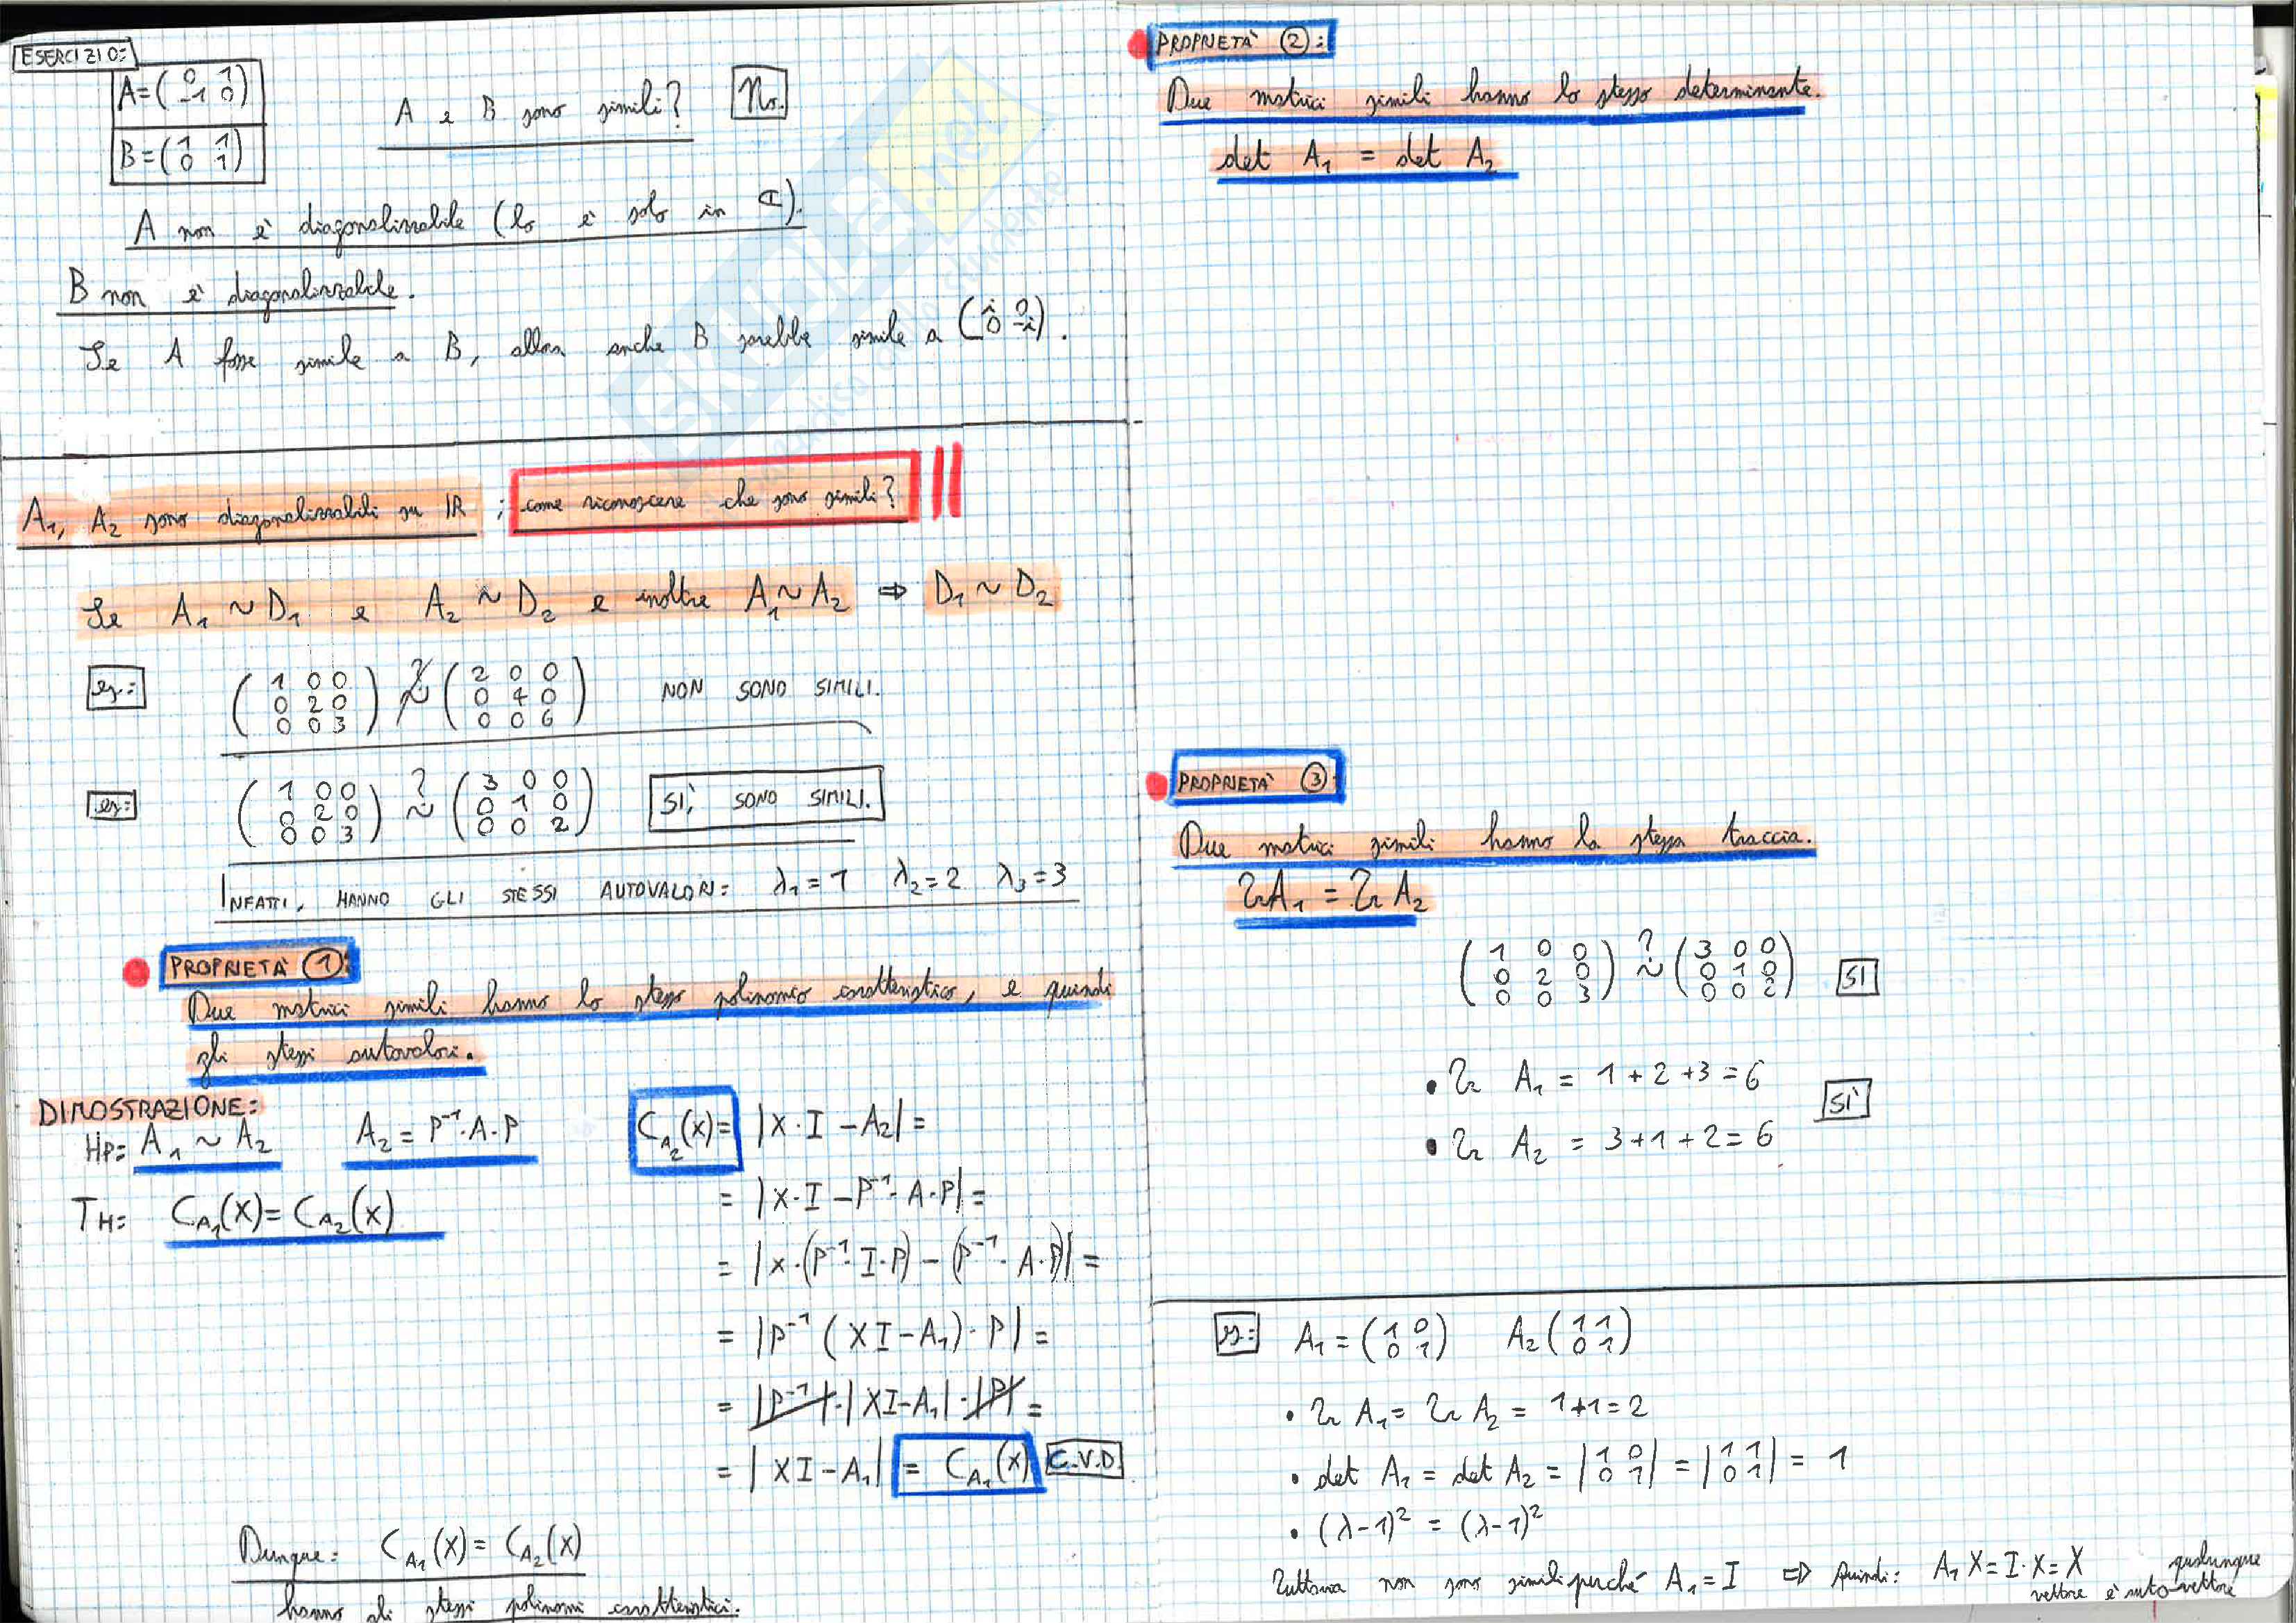 ESERCIZIO:
A = ( 0 1 / -1 0 )
B = ( 1 1 / 0 1 )
A e B sono simili? No.
A non è diagonalizzabile (lo è solo in ℂ).
B non è diagonalizzabile.
Se A fosse simile a B, allora anche B sarebbe simile a ( i 0 / 0 -i ).
A₁, A₂ sono diagonalizzabili su ℝ ; come riconoscere che sono simili?
Se A₁ ~ D₁ e A₂ ~ D₂ e inoltre A₁ ~ A₂ ⇒ D₁ ~ D₂
es.: ( 1 0 0 / 0 2 0 / 0 0 3 ) ≁ ( 2 0 0 / 0 4 0 / 0 0 6 ) NON SONO SIMILI.
es: ( 1 0 0 / 0 2 0 / 0 0 3 ) ~? ( 3 0 0 / 0 1 0 / 0 0 2 ) SI, SONO SIMILI.
INFATTI, HANNO GLI STESSI AUTOVALORI: λ₁ = 1 λ₂ = 2 λ₃ = 3
PROPRIETÀ ①:
Due matrici simili hanno lo stesso polinomio caratteristico, e quindi
gli stessi autovalori.
DIMOSTRAZIONE:
HP: A₁ ~ A₂ A₂ = P⁻¹·A·P
TH: C_A₁(x) = C_A₂(x)
C_A₂(x) = |X·I - A₂| =
= |X·I - P⁻¹·A·P| =
= |X·(P⁻¹·I·P) - (P⁻¹·A·P)| =
= |P⁻¹ (XI - A₁)·P| =
= |P⁻¹|·|XI - A₁|·|P| =
= |XI - A₁| = C_A₁(x) C.V.D.
Dunque: C_A₁(x) = C_A₂(x)
hanno gli stessi polinomi caratteristici.
PROPRIETÀ ②:
Due matrici simili hanno lo stesso determinante.
det A₁ = det A₂
PROPRIETÀ ③:
Due matrici simili hanno la stessa traccia.
Tr A₁ = Tr A₂
( 1 0 0 / 0 2 0 / 0 0 3 ) ~? ( 3 0 0 / 0 1 0 / 0 0 2 ) SI
• Tr A₁ = 1 + 2 + 3 = 6
• Tr A₂ = 3 + 1 + 2 = 6
SI
es: A₁ = ( 1 0 / 0 1 ) A₂ ( 1 1 / 0 1 )
• Tr A₁ = Tr A₂ = 1+1=2
• det A₁ = det A₂ = | 1 0 / 0 1 | = | 1 1 / 0 1 | = 1
• (λ-1)² = (λ-1)²
Tuttavia non sono simili perché A₁ = I ⇒ Quindi: A₁X = I·X = X qualunque
vettore è autovettore
SKUOLA.net